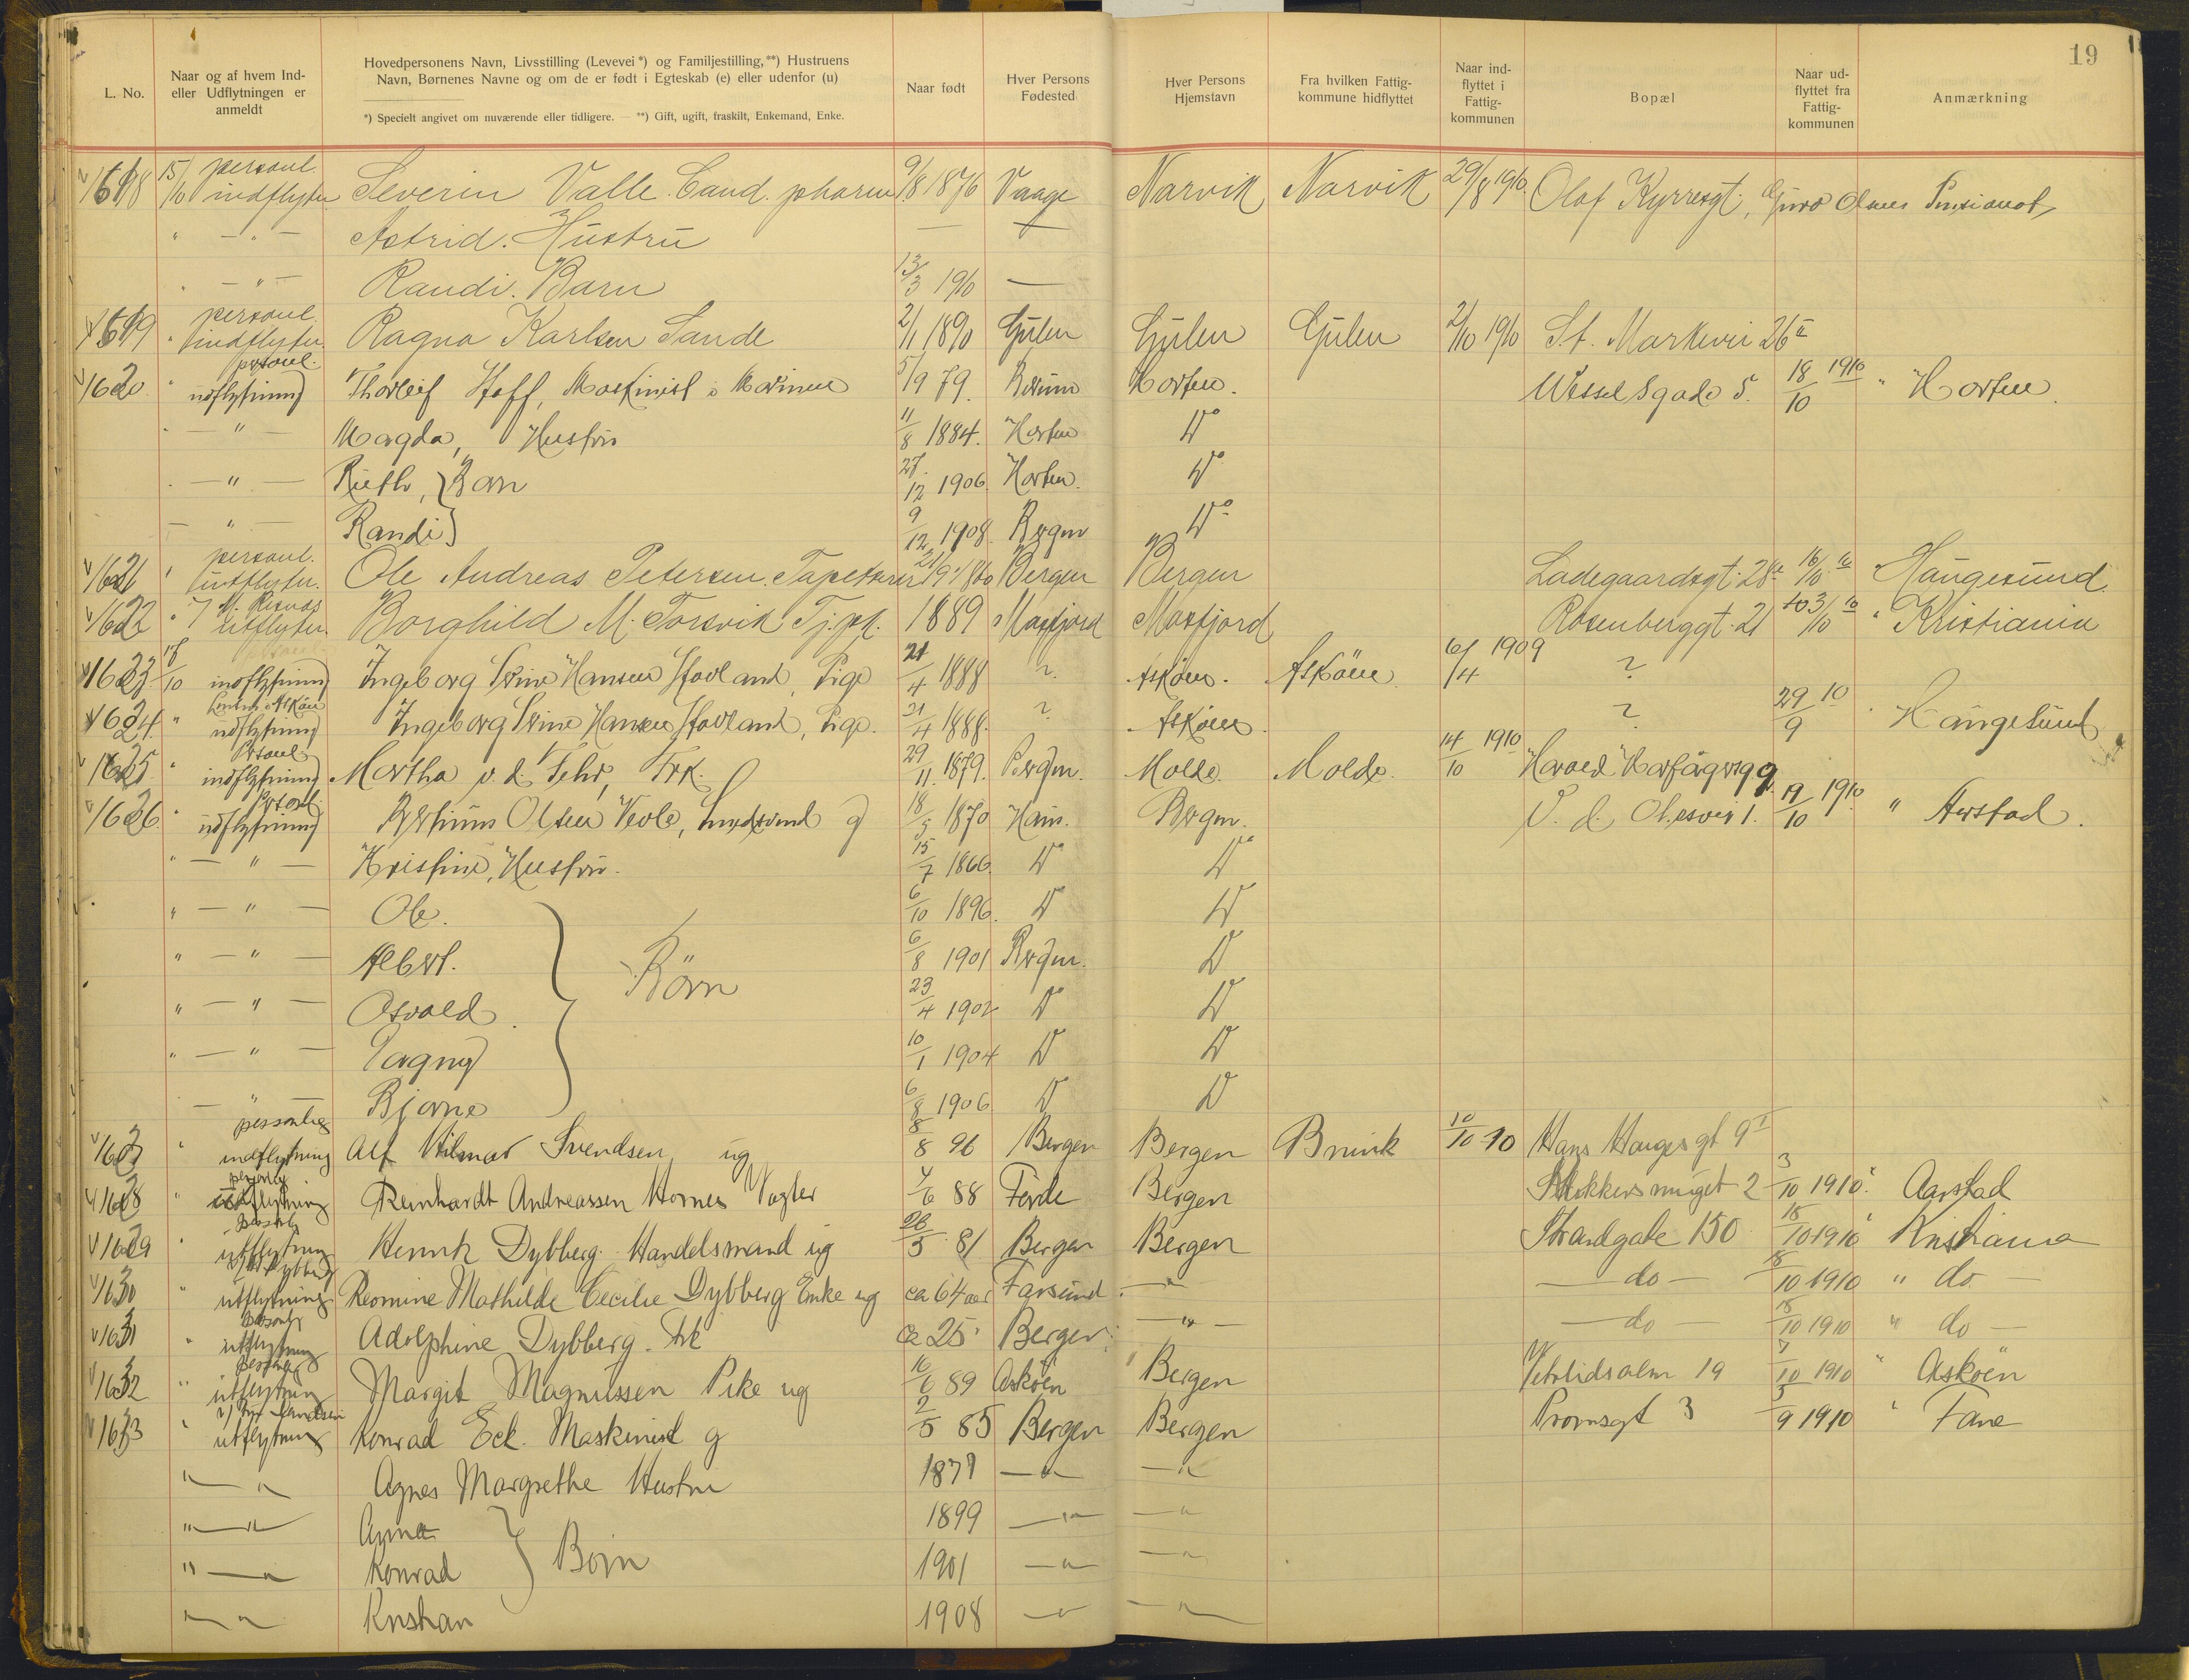 19
L. No. Naar og af hvem Ind- eller Udflytningen er anmeldt Hovedpersonens Navn, Livsstilling (Levevei *) og Familjestilling, **) Hustruens Navn, Børnenes Navne og om de er født i Egteskab (e) eller udenfor (u) Naar født Hver Persons Fødested Hver Persons Hjemstavn Fra hvilken Fattig- kommune hidflyttet Naar ind- flyttet i Fattig- kommunen Bopæl Naar ud- flyttet fra Fattig- kommunen Anmærkning
*) Specielt angivet om nuværende eller tidligere. — **) Gift, ugift, fraskilt, Enkemand, Enke.
1618 15/10 personl. indflytn Severin Valle. Cand. pharm 9/8 1876 Vaage Narvik Narvik 29/8 1910 Olaf Kyrresgt,
" — " — Astrid. Hustru — —
" — " — Randi. Barn 13/3 1910 —
1619 " personl. indflytn. Ragna Karlsen Sande 2/1 1890 Gulen Gulen Gulen 2/10 1910 St. Markevei 26
1620 " personl. udflytning Thorleif Hoff, Maskinist i Marinen 5/9 79. Horten. Wesselsgade 5. 18/10 1910 " Horten.
" — " — Magda, Hustru 11/8 1884. Horten Do
" — " — Ruth, } Barn 27/12 1906. Horten. Do
— " — Randi } 9/12 1908. Bergen Do
1621 " personl. utflytn. Ole Andreas Petersen. Tapetserer 21/9 1860 Bergen Bergen Ladegaardsgt. 28 16/10 10 Haugesund.
1622 " utflytn. Borghild M. Torsvik Tj.pk. 1889 Masfjord Masfjord Rosenberggt. 21 3/10 10 " Kristiania
1623 18/10 indflytning Ingeborg Stine Hansen Hovland, Pige 21/4 1888 ? Askøen. Askøen 6/4 1909 ?
1624 " udflytning Ingeborg Stine Hansen Hovland, Pige. 21/4 1888. ? Askøen. ? 29/9 10 " Haugesund
1625 " Personl indflytning Martha v. d. Fehr, Frk. 29/11 1879. Bergen. Molde. Molde. 14/10 1910 Harald Haarfagersg. 9
1626 " Personl. udflytning Olsen Veole, g 18/5 1870 Haus. Bergen. V. d. Olesvei 1. 19/10 1910. " Aarstad.
" — " — Kristine, Hustru. 15/7 1866. Do Do
" — " — Ole. } Børn 6/10 1896. Do Do
" — " — Albert. 6/8 1901 Bergen. Do
" — " — Osvald. 23/4 1902 Do Do
" — " — Dagny 10/1 1904 Do Do
— " — Bjarne 6/8 1906 Do Do
1627 " personlig indflytning Alf Hilmar Svendsen ug 8/8 96 Bergen Bergen Bruvik 10/10 10 Hans Haugesgt 9 I
1628 " personlig utflytning Reinhardt Andreassen Hornes Vogter 4/6 88 Førde Bergen Stikkersmuget 2 3/10 1910. Aarstad
1629 " utflytning Henrik Dybberg. Handelsmand ug 26/5 81 Bergen Bergen Strandgate 150 18/10 1910 Kristiania
1630 " utflytning Mathilde Cecilie Dybberg Enke ug ca 64 aar Farsund — " — do — 18/10 1910 " do —
1631 " utflytning Adolphine Dybberg. Frk ca 25 Bergen — " — — do — 18/10 1910 " do —
1632 " personlig utflytning Margit Magnussen Pike ug 16/6 89 Askøen Bergen Vetrlidsalm 19 7/10 1910 " Askøen
1633 " utflytning Konrad Eck. Maskinist g 2/5 85 Bergen Bergen Promsgt 3 /9 1910 " Fane
" — " Agnes Margrethe Hustru 1877 — " — — "
" — " Anna } Børn 1899 — " — — "
" — " Konrad 1901 — " — — "
" — " Kristian 1908 — " — "